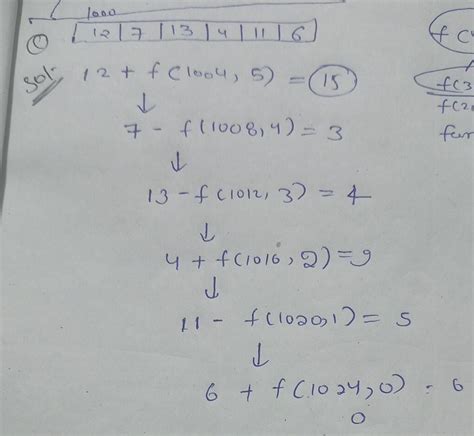 1000
① 12 | 7 | 13 | 4 | 11 | 6
Sol. 12 + f(1004, 5) = 15
↓
7 - f(1008, 4) = 3
↓
13 - f(1012, 3) = 4
↓
4 + f(1016, 2) = 9
↓
11 - f(1020, 1) = 5
↓
6 + f(1024, 0) = 6
0
f(3
f(2